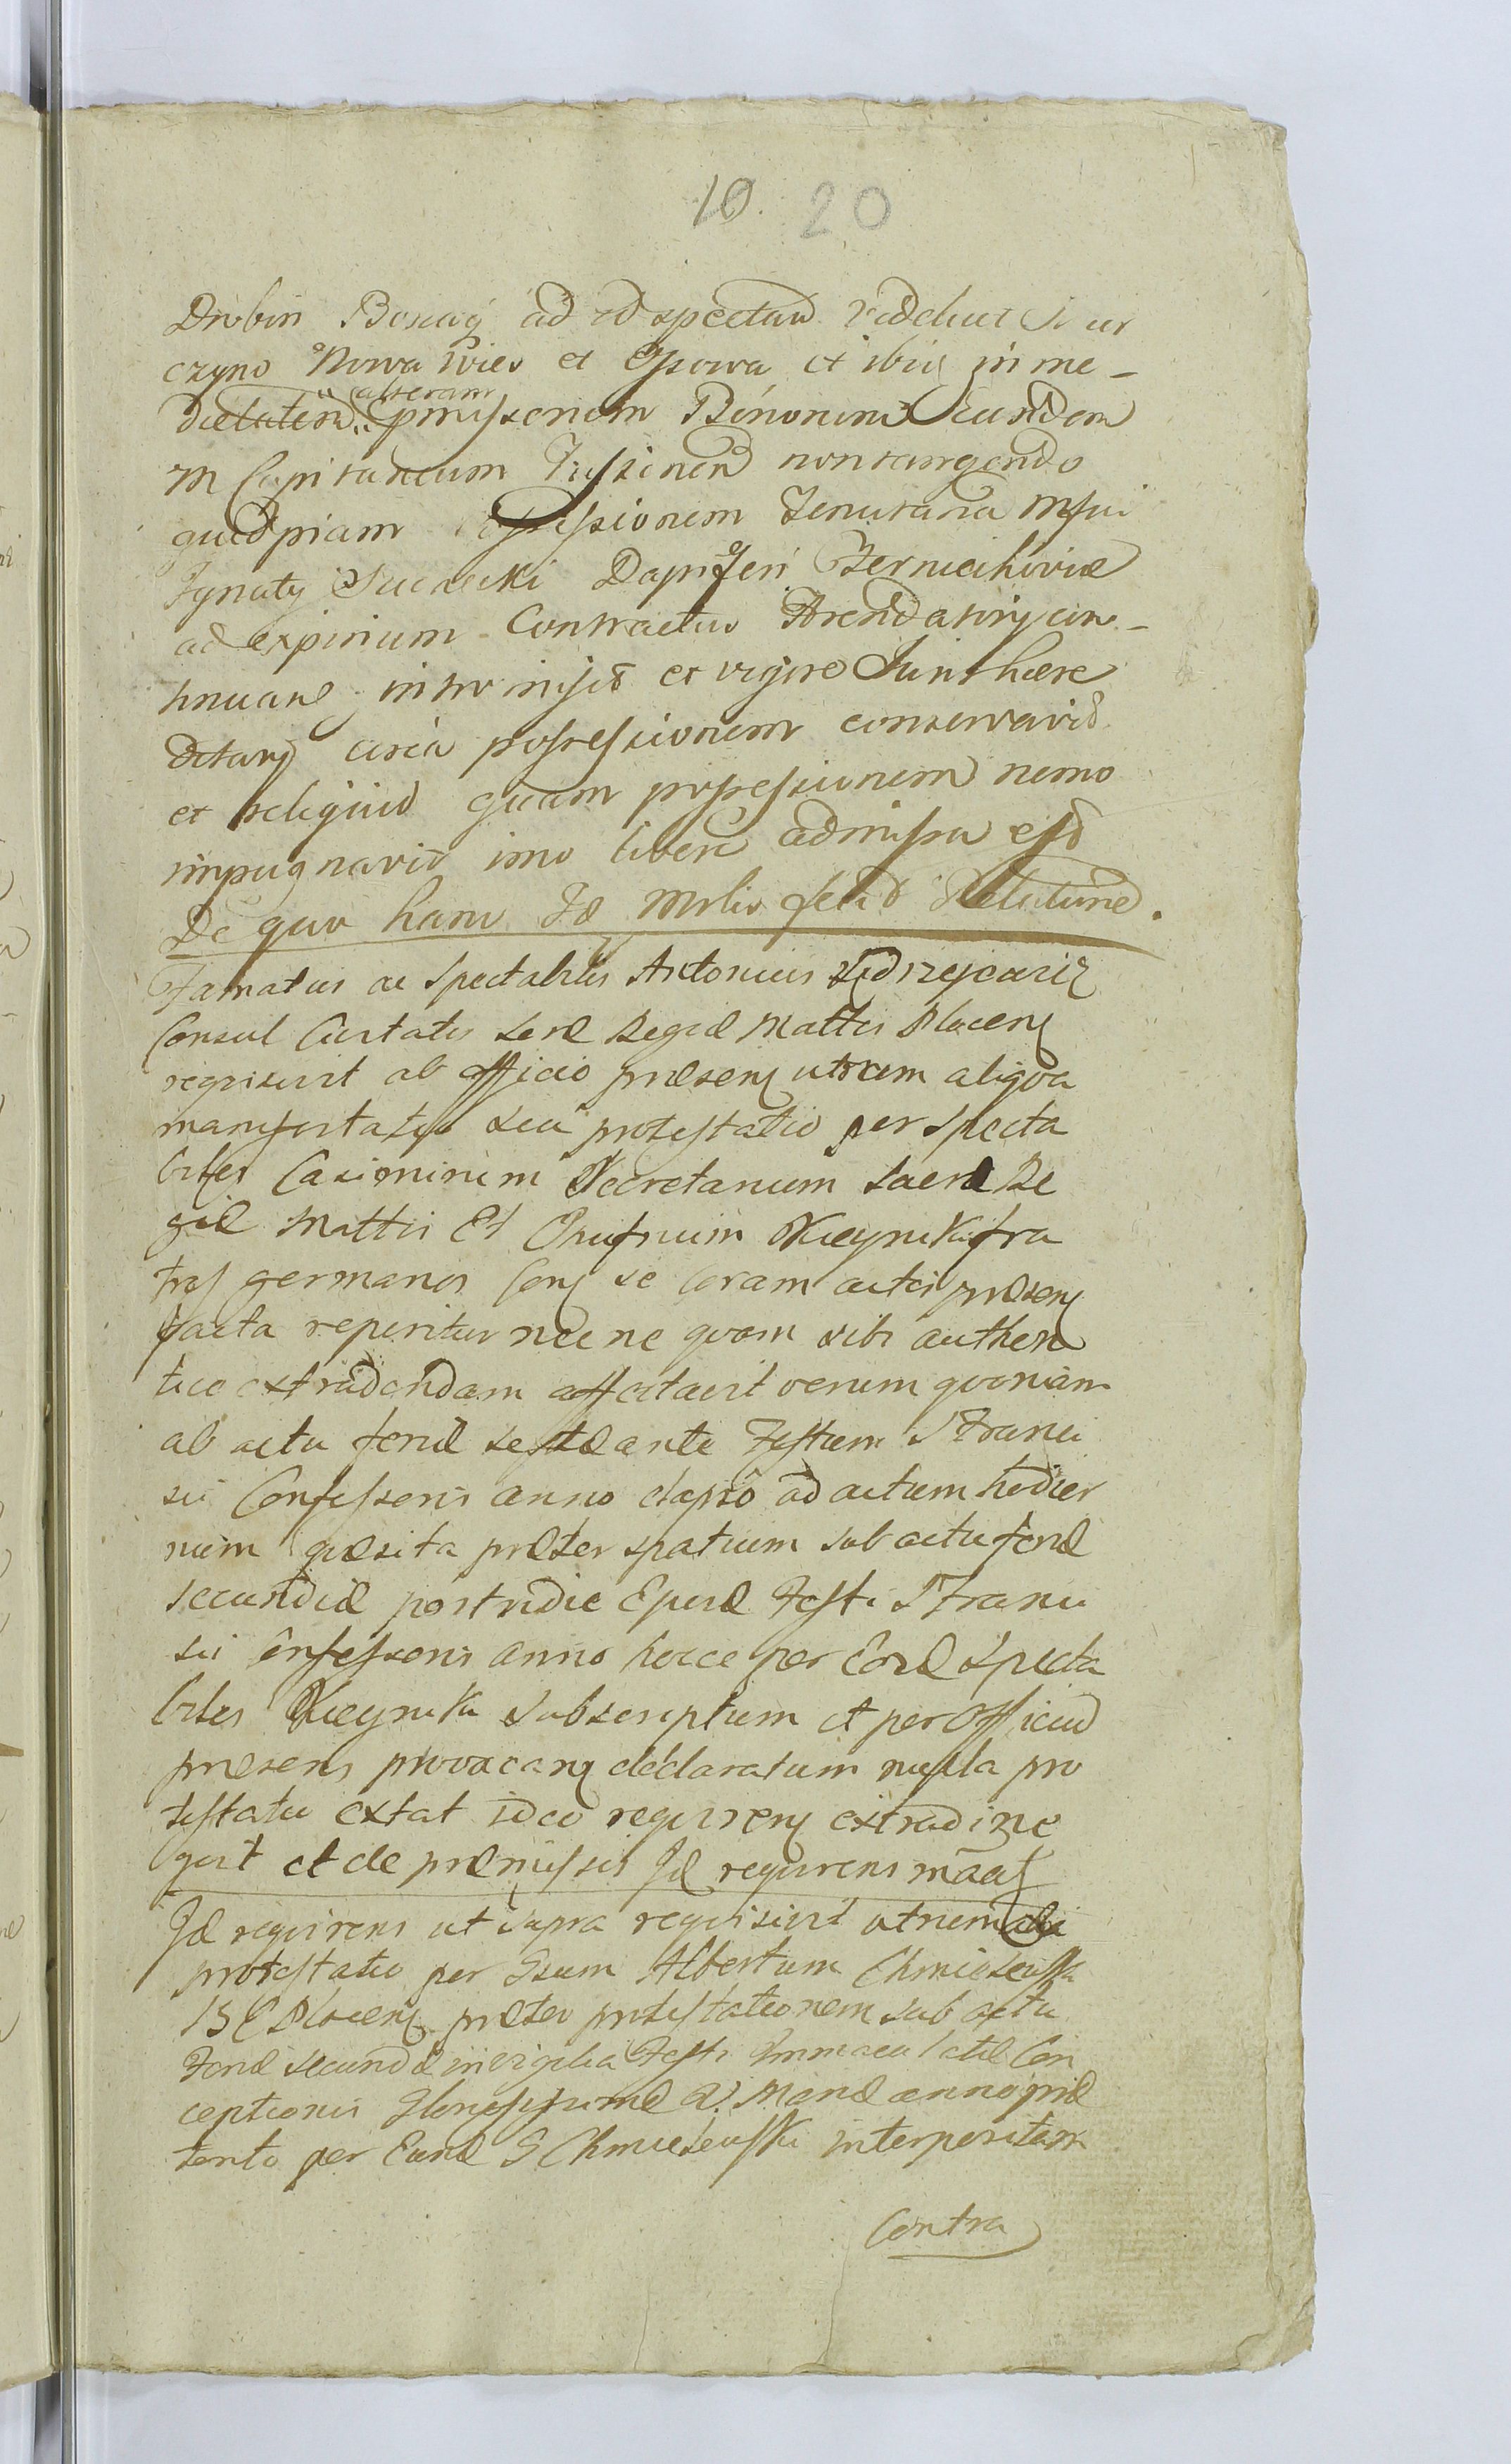 10. 20
Drobin Boncay ad id spectan videlicet Siur
czyno Nowa Wies et Osowa et ibiq in me-
dietatem alteram
pmissorum Bonorum eundem
M Capitaneum Tussinen non tangendo
quidpiam possessionem Tenutaria Msui
Ignaty Suchecki Dapiferi Czerniechoviae
ad expirium Contractus Arendatorij con-
tinuans intromisit et vigore Juris haere
ditary circa possessionem conservavit
et reliquid quam possessionem nemo
impugnavit imo libere admissa est
De quo hanc Id Mlis fecit Relatione.
Famatus ac Spectabilis Antonius
Consul Civitatis Scrae Regiae Mattis Plocens
requisivit ab officio praesenq utrum aliqva
manifestatio seu protestatio per specta
biles Casimirum Secretarium Sacrae Re
giae Mattis Et Onufrium fra
tres germanos Conq se coram actis praesenq
facta reperitur nec ne qvam sibi authen
tice extradendam affectavit verum qvoniam
ab actu feriae sextae ante Festum S Franci
sci Confessoris anno elapso ad actum hodier
num qvaesita praeter spatium sub actu feriae
secundae postridie Festi S Franci
sci Confessoris anno hocce per Eosd specta
biles subscriptum et per Officiu
praesens provacanq declaratum nulla pro
testatio extat ideo requirenq extradi ne
qvit et de praemissis Id requirens
Id requirens ut supra requisivit utrum
protestatio per Gsum Albertum Chmielewski
B C Plocenq praeter protestationem sub actu
Feriae secundae in vigilia Festi Immaculatae Con
ceptionis Gloriosissimae V. Mariae anno praе
terito per Eund G Chmielewski interpositam
Contra